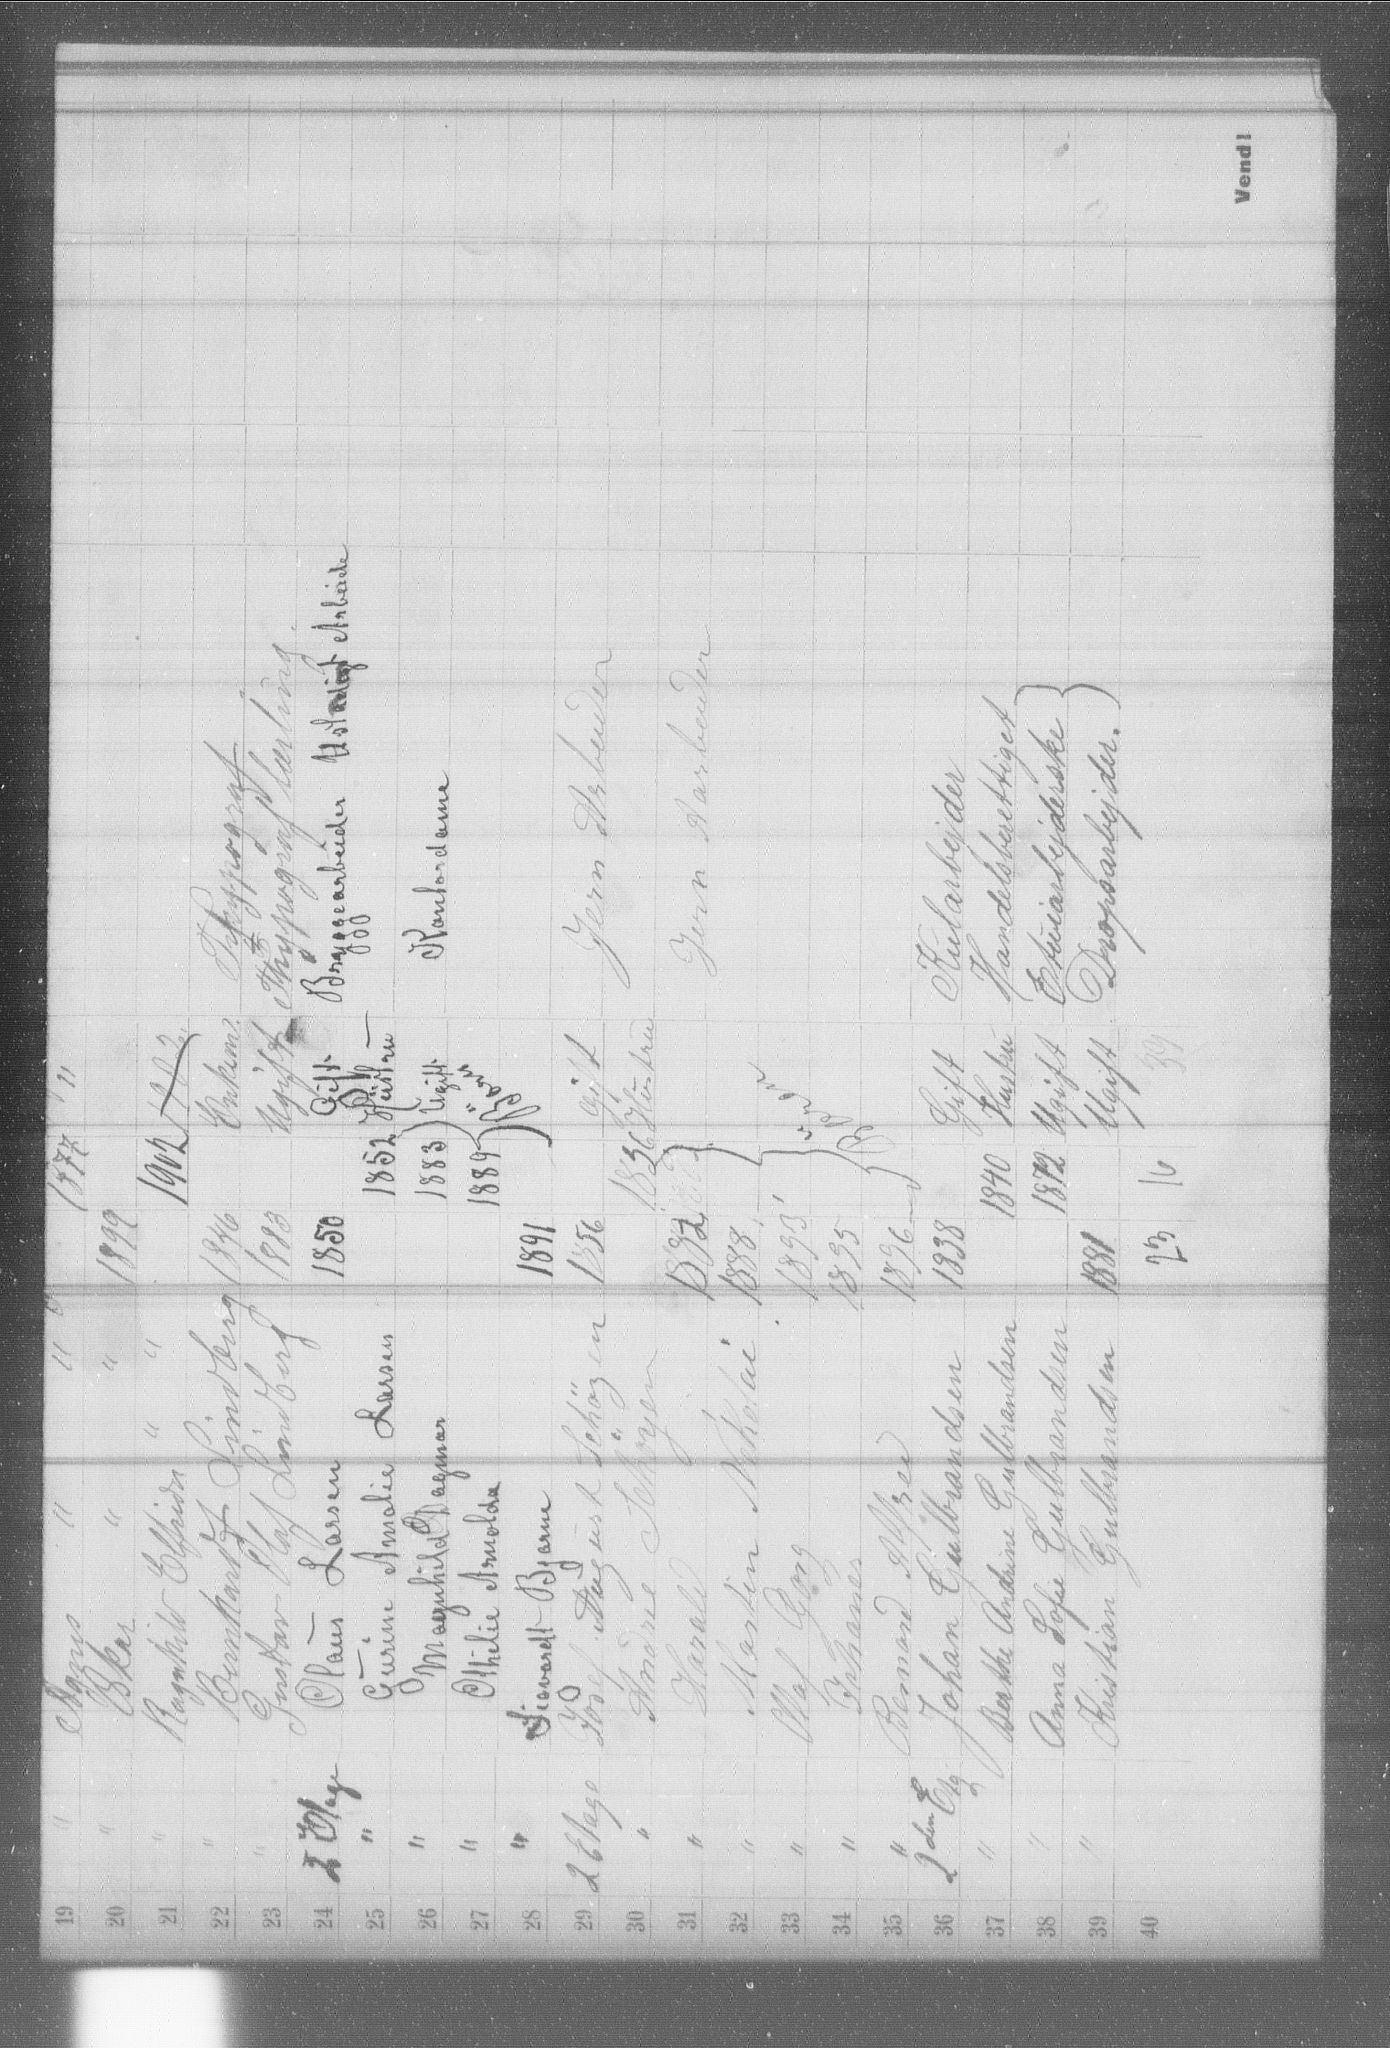 19 " Hans " " 1877 "
20 " Oskar " " 1899
21 " Ragnhild Elfrida " " 1902
22 " Bernhardt Lindberg 1846 Enkem. Typograf
23 " Gustav Olaf Lindberg 1883 Ugift Typograf lærling.
24 2 Etage Olaus Larsen 1850 Gift Bryggearbeider Ustadigt Arbeide
25 " Gurine Amalie Larsen 1852 Hustru
26 " Magnhild Dagmar 1883 Ugift Kontordame
27 " Othilie Arnolda 1889 "
28 " Sievardt Bjarne 1891 Barn
29 2 Etage Josef August Schøyen 1856 gift Jern Arbeider
30 " Andrea Schøyen 1856 Hustru
31 " Harald 1882 Jern Aarbeider
32 " Martin Nikolai 1888
33 " Olaf Georg 1893
34 " Johannes 1895 Barn
35 " Bernard Alfred 1896
36 2den Etg Johan Gulbrandsen 1838 Gift Kularbejder
37 " Berthe Andrine Gulbrandsen 1840 Hustru Handelsberettiget
38 " Anna Sofie Gulbrandsen 1872 Ugift Etuiarbejderske
39 " Kristian Gulbrandsen 1881 Ugift Dropsarbejder.
40 23 16 39
Vend!